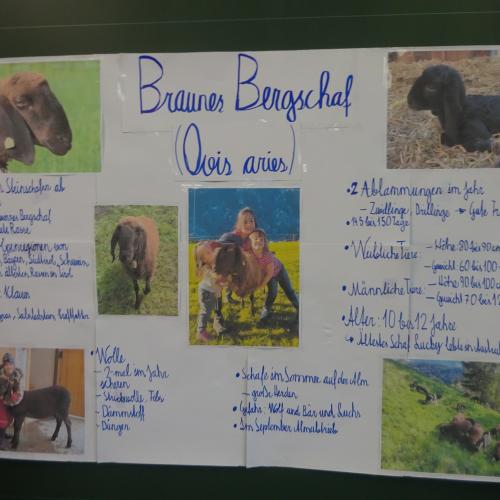 Braunes Bergschaf
(Ovis aries)
Steinschafen ab
Bergschaf
Rasse
von
Bayern, Südtirol, Schweiz
ältesten Rassen in Tirol
Klauen
Salzleckstein, Kraftfutter
• 2 Ablammungen im Jahr
– Zwillinge, Drillinge → Gute
• 145 bis 150 Tage
• Weibliche Tiere: – Höhe: 80 bis 90 cm
– Gewicht: 60 bis 100
• Männliche Tiere: – Höhe: 90 bis 100 cm
– Gewicht: 70 bis
• Alter: 10 bis 12 Jahre
↳ Ältestes Schaf Lucky lebte in
• Wolle
– 2-mal im Jahr
scheren
– Strickwolle, Filz
– Dämmstoff
– Dünger
• Schafe im Sommer auf der Alm
– große Herden
• Gefahr: Wolf und Bär und Luchs
• Im September Almabtrieb